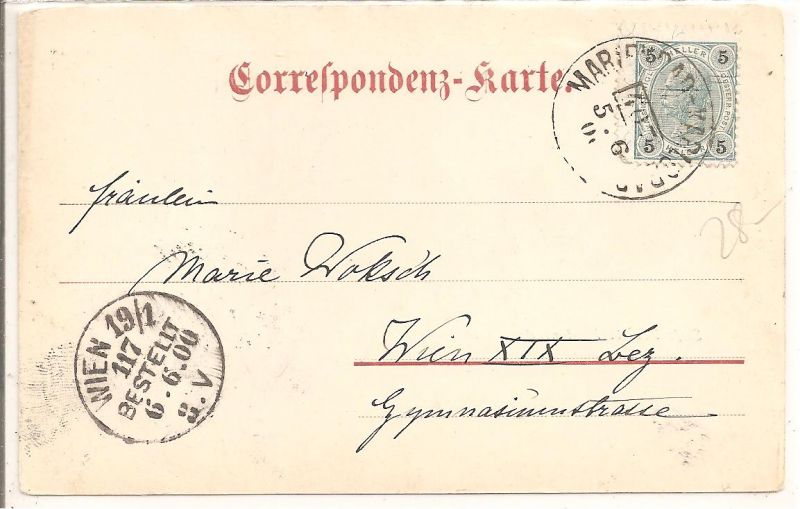 Correspondenz-Karte.
5 HELLER 5
5 5
MARIENBAD-KARLSBAD
5.6
28-
Fräulein
Marie Woksch
Wien XIX Bez.
Gymnasiumstrasse
WIEN 19/1
117
BESTELLT
6.6.00
8.V